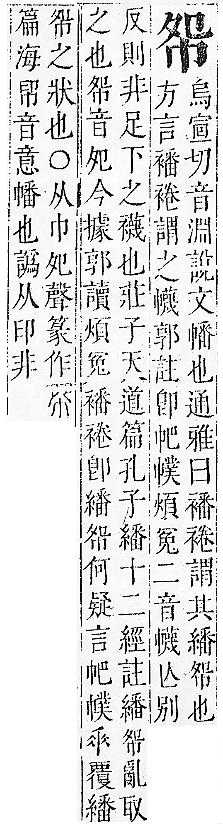 㠾烏宣切音淵說文幡也通雅曰襎裷謂其繙㠾也
方言襎裷謂之幭郭註卽帊幞煩冤二音幭亾別
反則非足下之襪也莊子天道篇孔子繙十二經註繙㠾亂取
之也㠾音夗今據郭讀煩冤襎裷卽繙㠾何疑言帊幞覆繙
㠾之狀也○从巾夗聲篆作
篇海音意幡也譌从印非